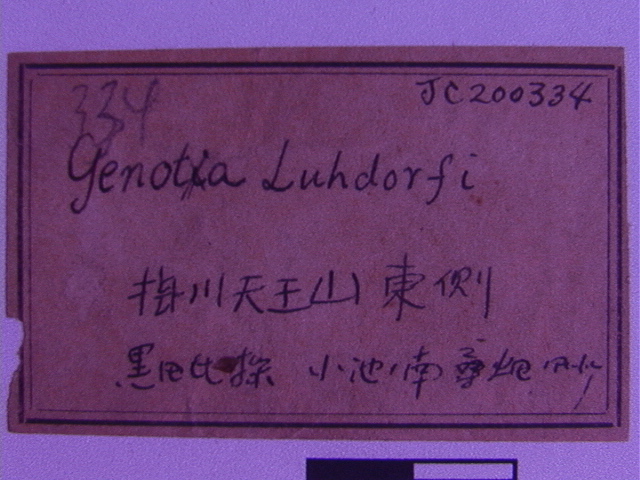 334
JC200334
Genotia Luhdorfi
梅川天王山東側
黒田比探 小池 南